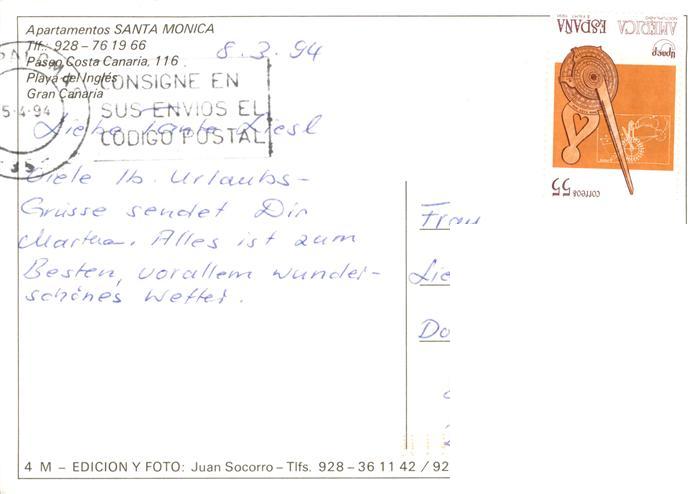 Apartamentos SANTA MONICA
Tlf.: 928 - 76 19 66
Paseo Costa Canaria, 116
Playa del Inglés
Gran Canaria
8.3.94
5-4-94
CONSIGNE EN
SUS ENVIOS EL
CODIGO POSTAL
ESPAÑA
AMERICA
upaep
correos
55
Liebe Tante Liesl
Viele lb. Urlaubs-
Grüsse sendet Dir
Martha. Alles ist zum
Besten, vorallem wunder-
schönes Wetter.
Frau
Lie
Do
4 M - EDICION Y FOTO: Juan Socorro - Tlfs. 928 - 36 11 42 / 92